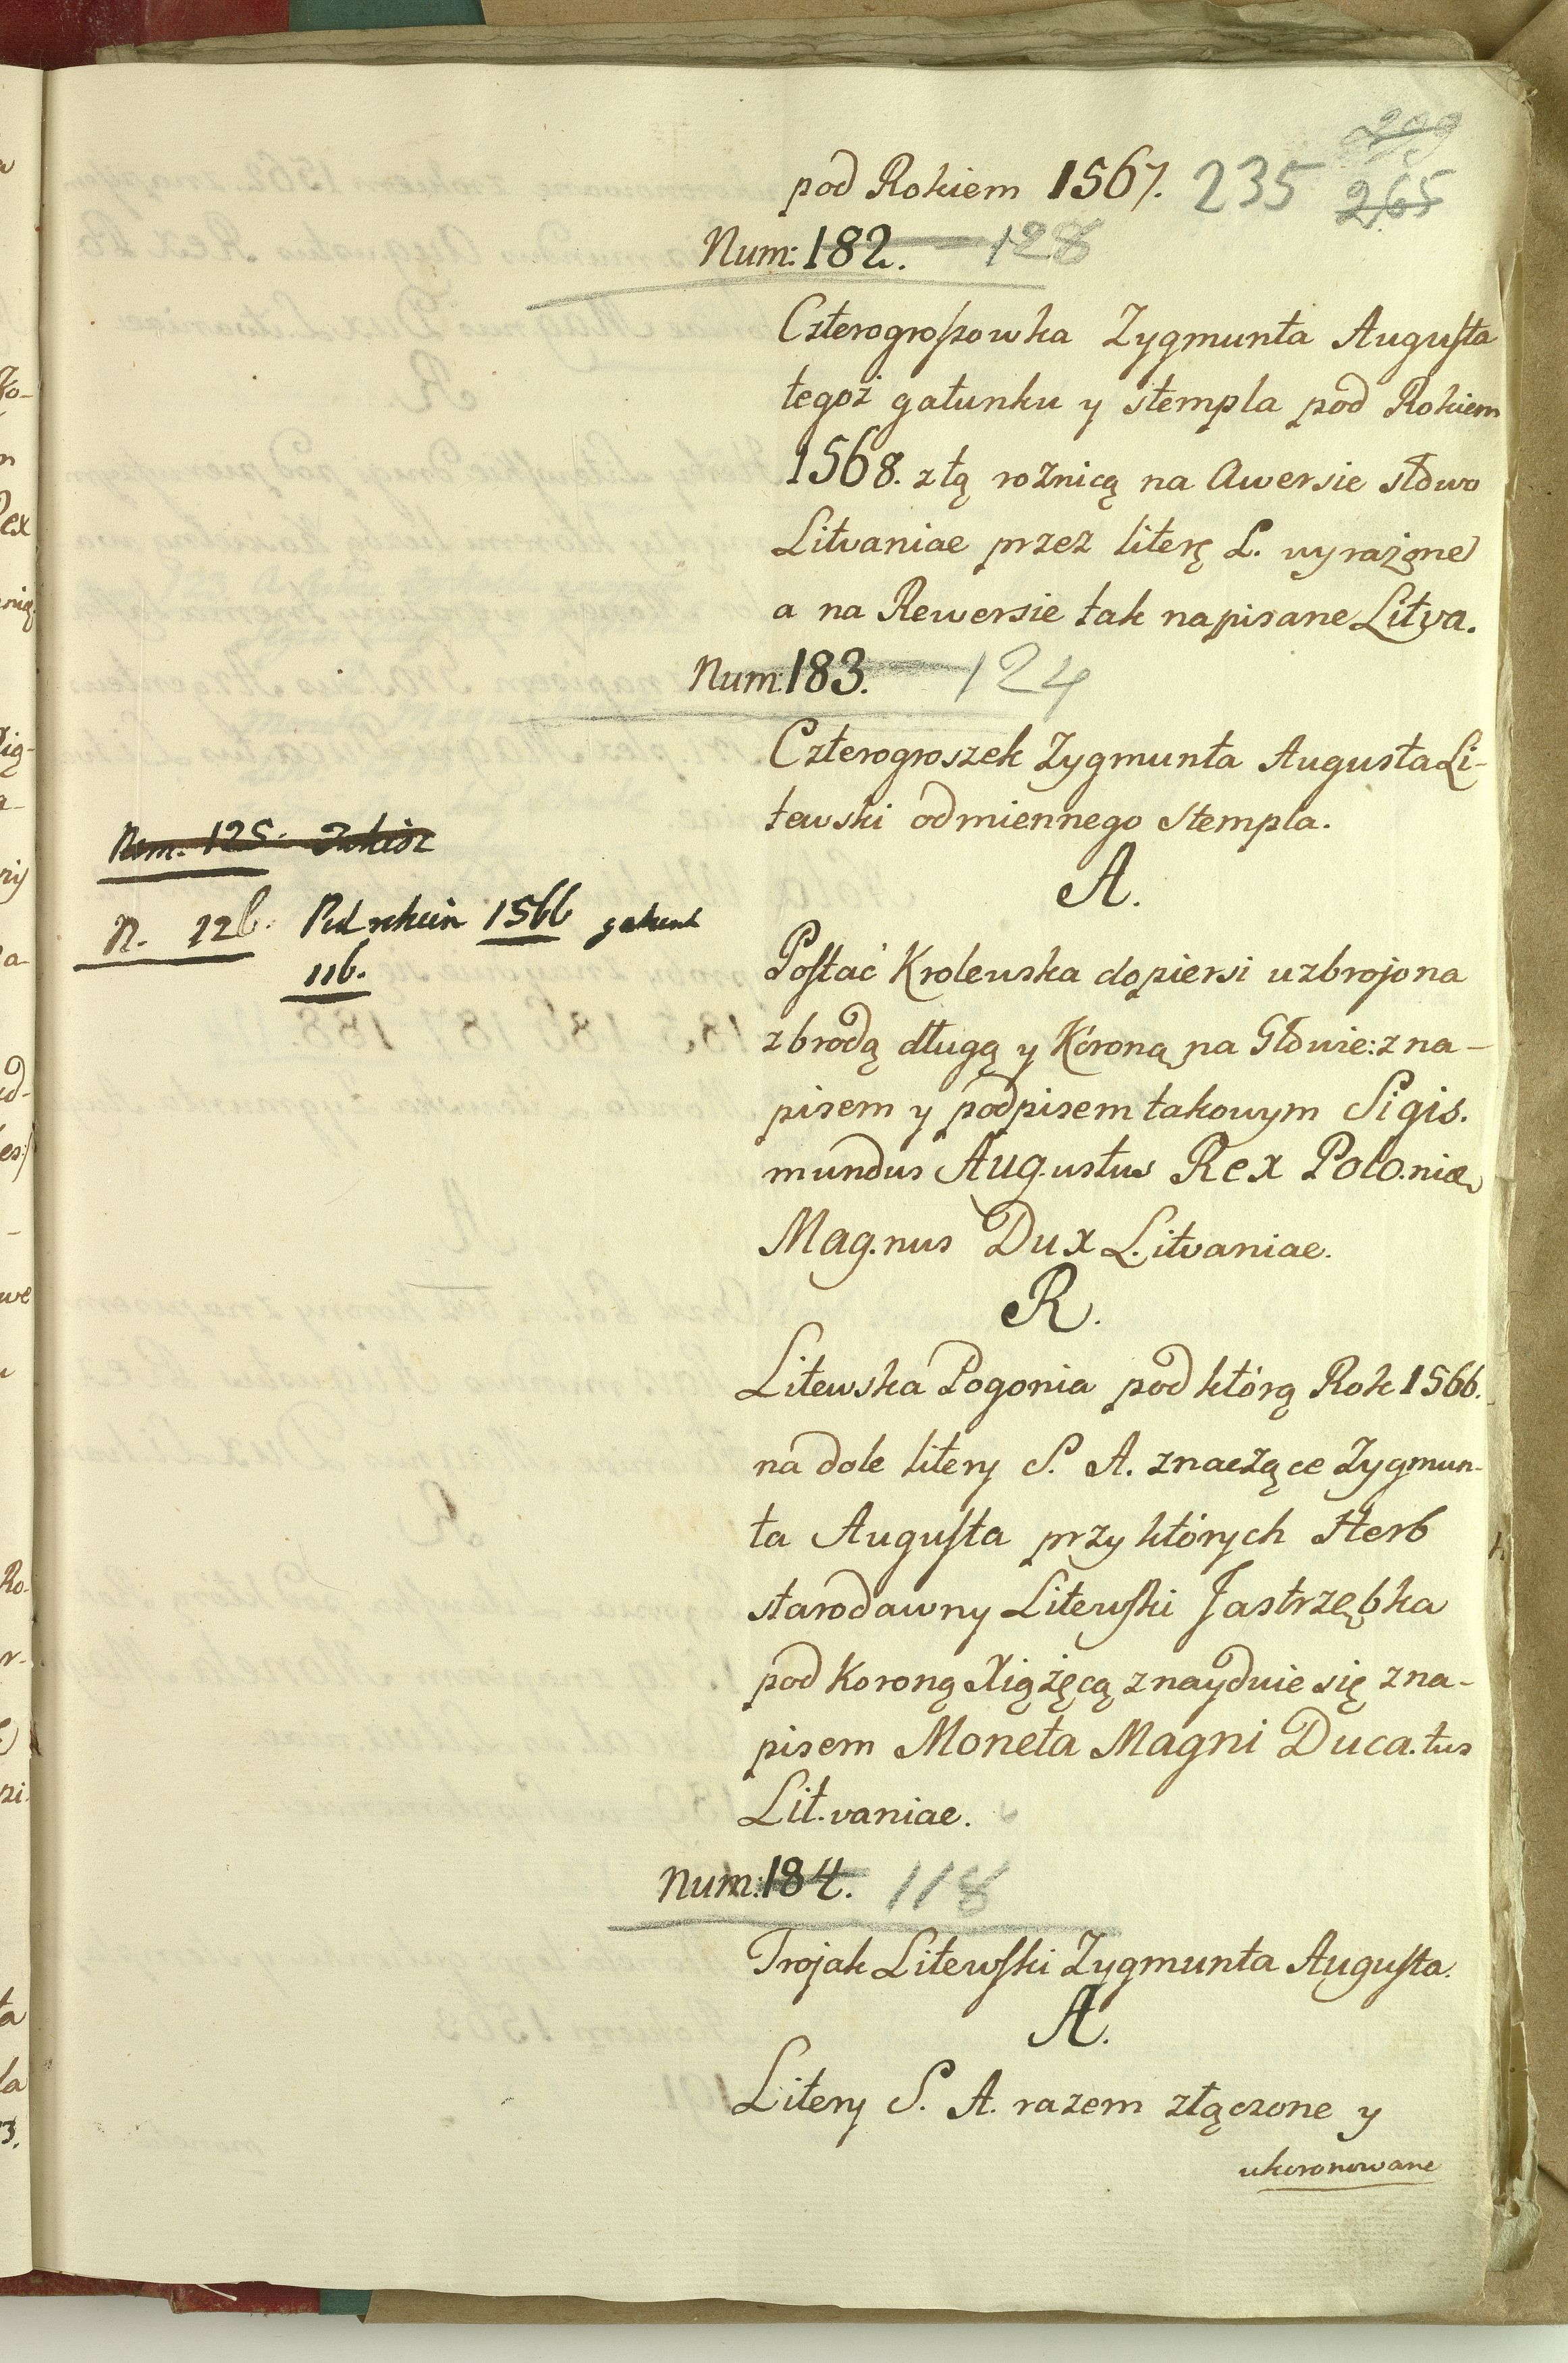 209
pod Rokiem 1567. 235 265
Num: 182. 128
Czterogroszowka Zygmunta Augusta
tegoż gatunku y stempla pod Rokiem
1568. z tą rożnicą na Awersie słowo
Litvaniae przez literę L. wyrażone
a na Rewersie tak napisane Litva.
Num: 183. 124
Czterogroszek Zygmunta Augusta Li-
tewski odmiennego Stempla.
A.
Num. 125.
N. 126. Pod rokiem 1566 gatunk
116.
Postać Krolewska do piersi uzbrojona
z brodą długą y Koroną na Głowie: z na-
pisem y podpisem takowym Sigis.
mundus Aug.ustus Rex Polo.niae
Mag.nus Dux L.itvaniae.
R.
Litewska Pogonia pod którą Rok 1566.
na dole litery S. A. znaczące Zygmun-
ta Augusta przy których Herb
starodawny Litewski Jastrzębka
pod Koroną Xiążęcą znayduie się z na-
pisem Moneta Magni Duca.tus
Lit.vaniae.
Num: 184. 118
Trojak Litewski Zygmunta Augusta.
A.
Litery S. A. razem złączone y
ukoronowane